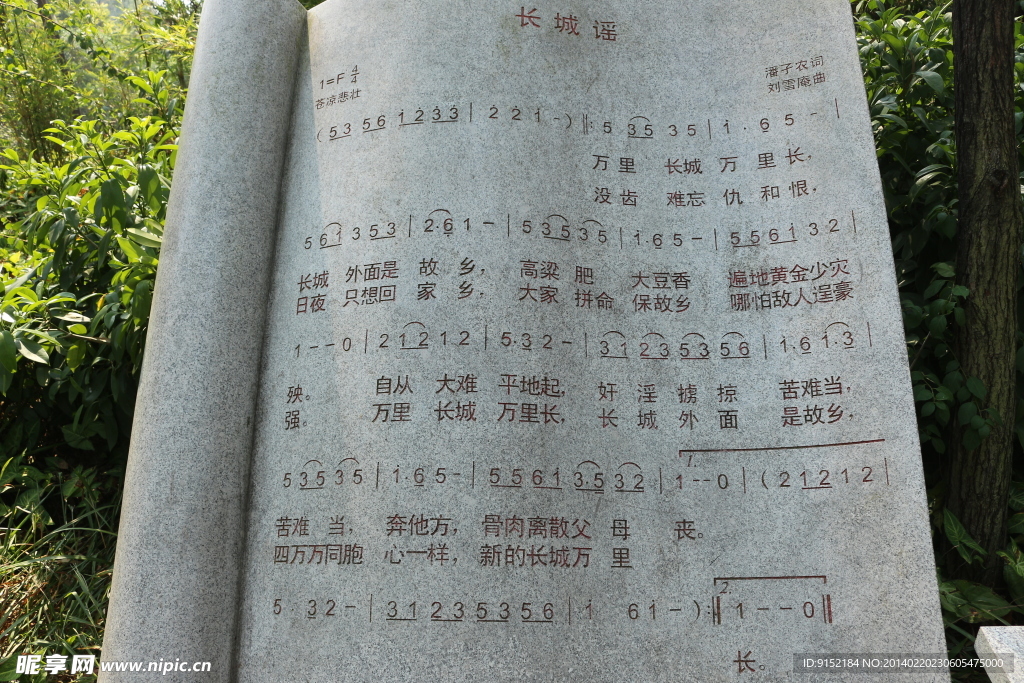 长城谣
1=F 4/4
潘子农词
苍凉悲壮
刘雪庵曲
(53 56 1233 | 2 2 1 -) ‖: 5 35 3 5 | 1 · 6 5 - |
万里 长城 万里长,
没齿 难忘 仇和恨,
5 61 3 53 | 2·6 1 - | 5 35 35 | 1·6 5 - | 5561 3 2 |
长城 外面是 故 乡, 高粱 肥 大豆香 遍地黄金少灾
日夜 只想回 家 乡. 大家 拼命 保故乡 哪怕敌人逞豪
1 - - 0 | 2 12 1 2 | 5·3 2 - | 31 23 53 56 | 1·6 1·3 |
殃。 自从 大难 平地起, 奸 淫 掳 掠 苦难当,
强。 万里 长城 万里长, 长 城 外 面 是故乡,
5 35 35 | 1·6 5 - | 5561 3·5 32 | 1. 1 - - 0 | (2 12 1 2 |
苦难 当, 奔他方, 骨肉离散父 母 丧。
四万万同胞 心一样, 新的长城万 里
5 · 3 2 - | 31 23 53 56 | 1 6 1 - ) :‖ 2. 1 - - 0 ‖
长。
昵享网 www.nipic.cn
ID:9152184 NO:20140220230605475000